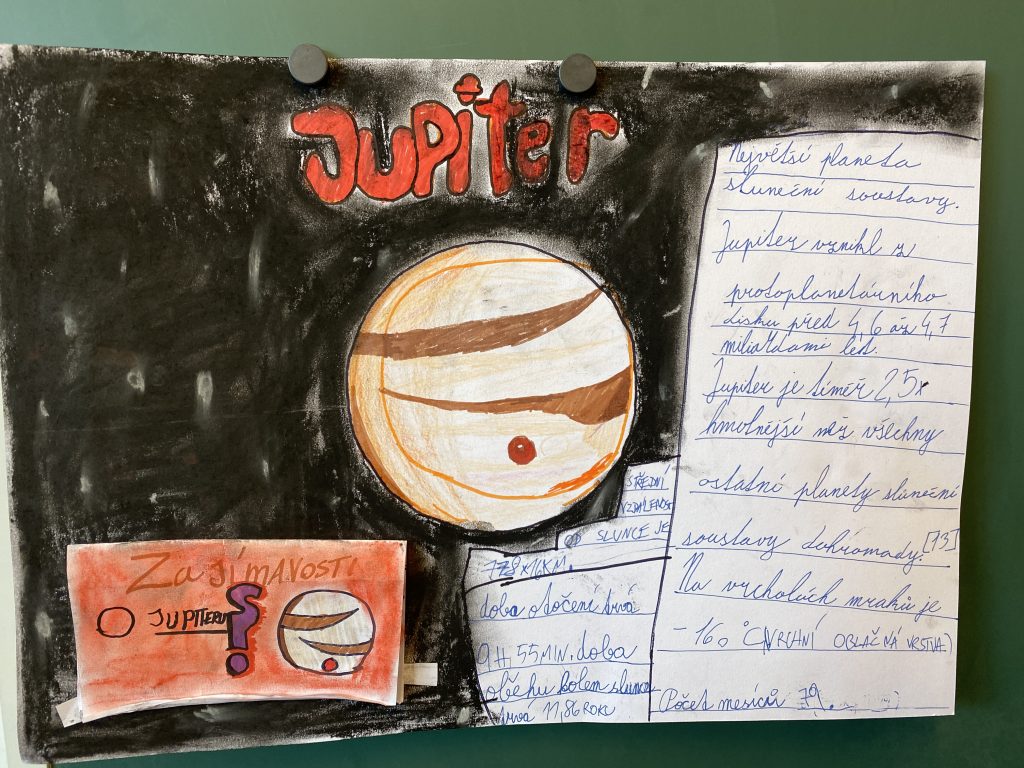 Jupiter
Největší planeta
sluneční soustavy.
Jupiter vznikl z
protoplanetárního
disku před 4,6 až 4,7
miliardami let.
Jupiter je téměř 2,5x
hmotnější než všechny
ostatní planety sluneční
soustavy dohromady.[13]
Na vrcholech mraků je
-160 °C (VRCHNÍ OBLAČNÁ VRSTVA)
Počet mesíců 79.
STŘEDNÍ
VZDÁLENOST
OD SLUNCE JE
778 KM.
doba otočení trvá
9H, 55MIN. doba
oběhu kolem slunce
trvá 11,86 ROKU
ZaJÍMAVOSTI
O JUPITERU?